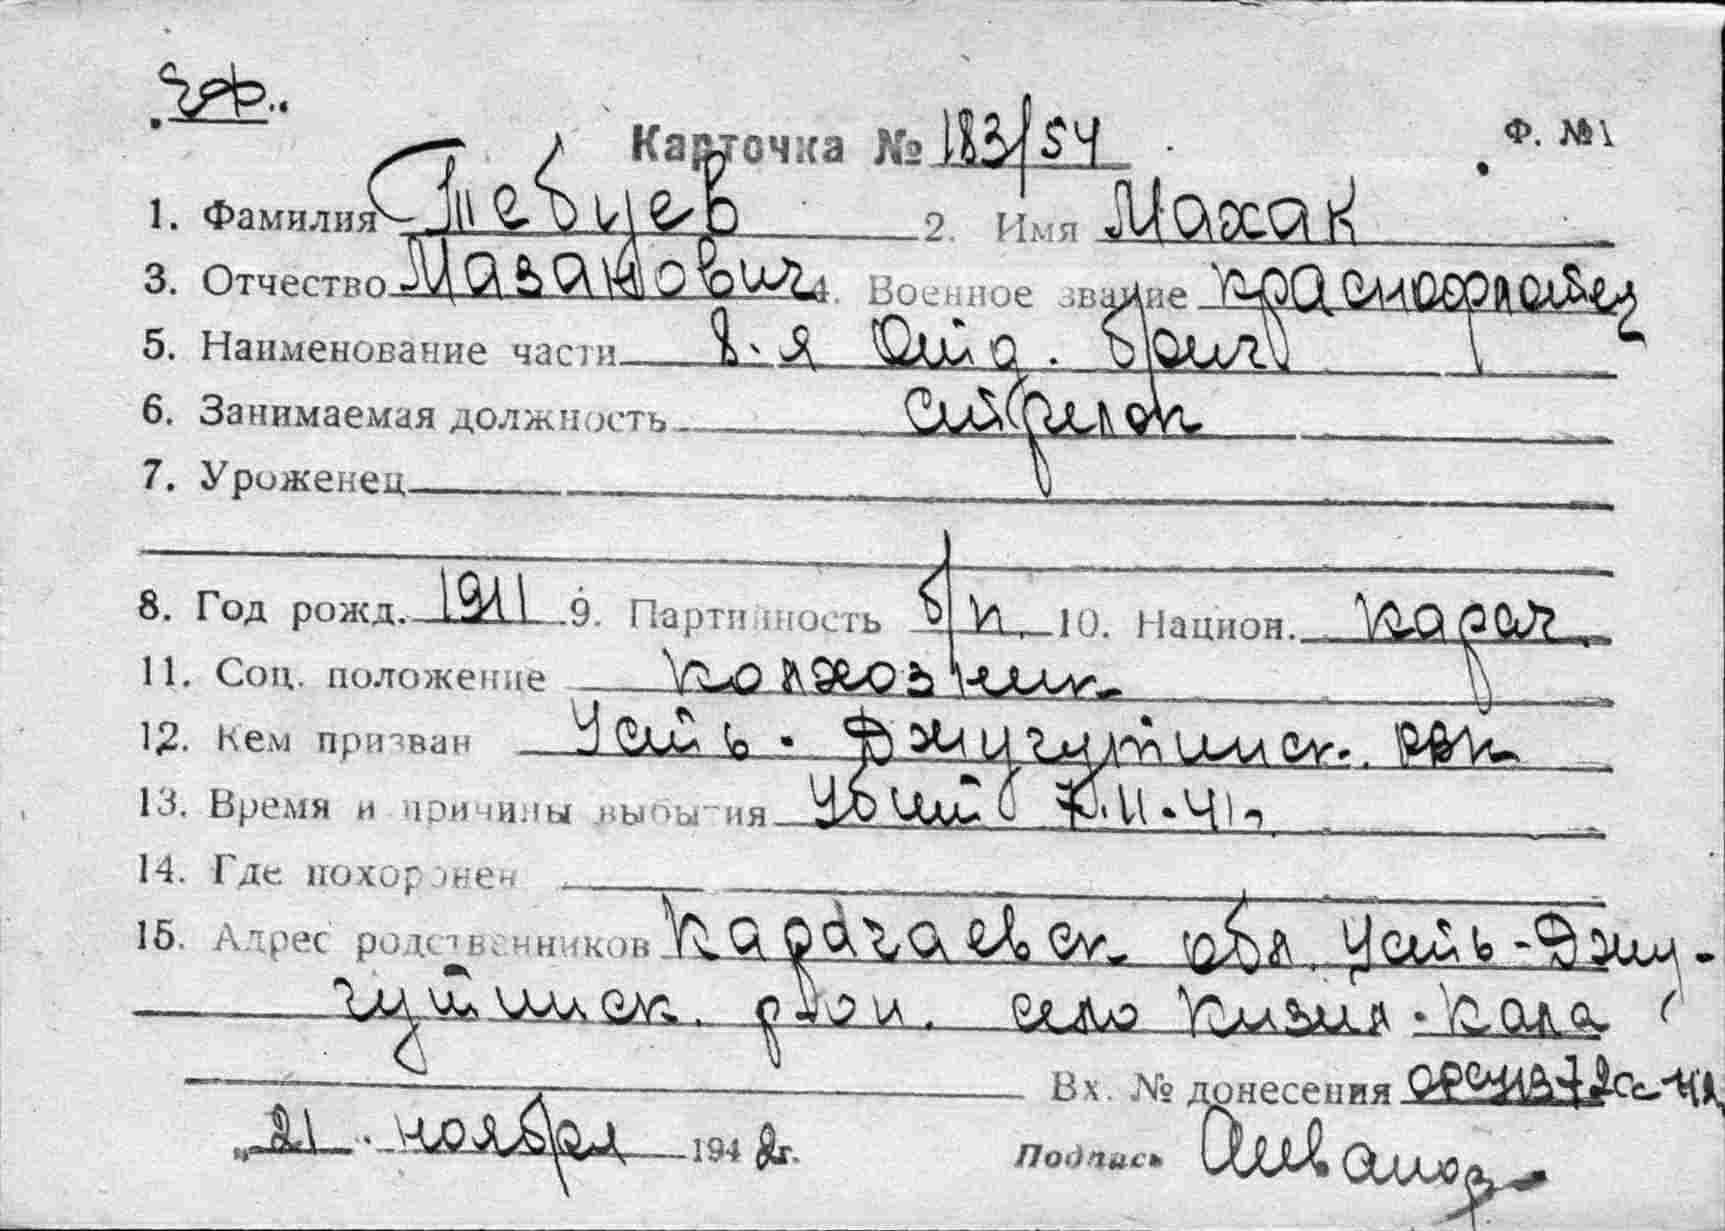 чф.
Карточка № 183/54 Ф. №1
1. Фамилия Тебуев 2. Имя Махак
3. Отчество Мазанович 4. Военное звание краснофлотец
5. Наименование части 8-я Отд. бриг
6. Занимаемая должность стрелок
7. Уроженец
8. Год рожд. 1911 9. Партийность б/п. 10. Национ. карач.
11. Соц. положение колхозник
12. Кем призван Усть-Джугутинск. рвк
13. Время и причины выбытия Убит 7.11.41г.
14. Где похоронен
15. Адрес родственников Карачаевск обл. Усть-Джу-
гутинск. рион. село Кизил-Кала
Вх. № донесения
„21" ноября 1942г. Подпись